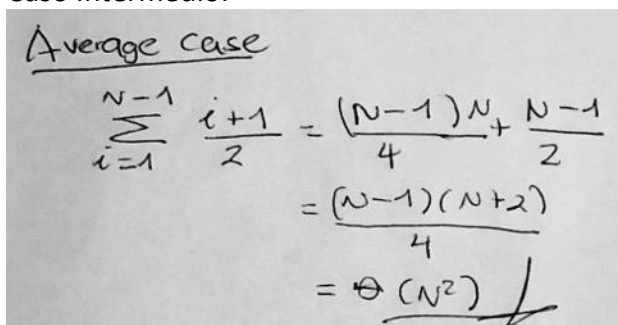 Average case
N-1
∑ i+1/2 = (N-1)N/4 + N-1/2
i=1
= (N-1)(N+2)/4
= Θ(N²)